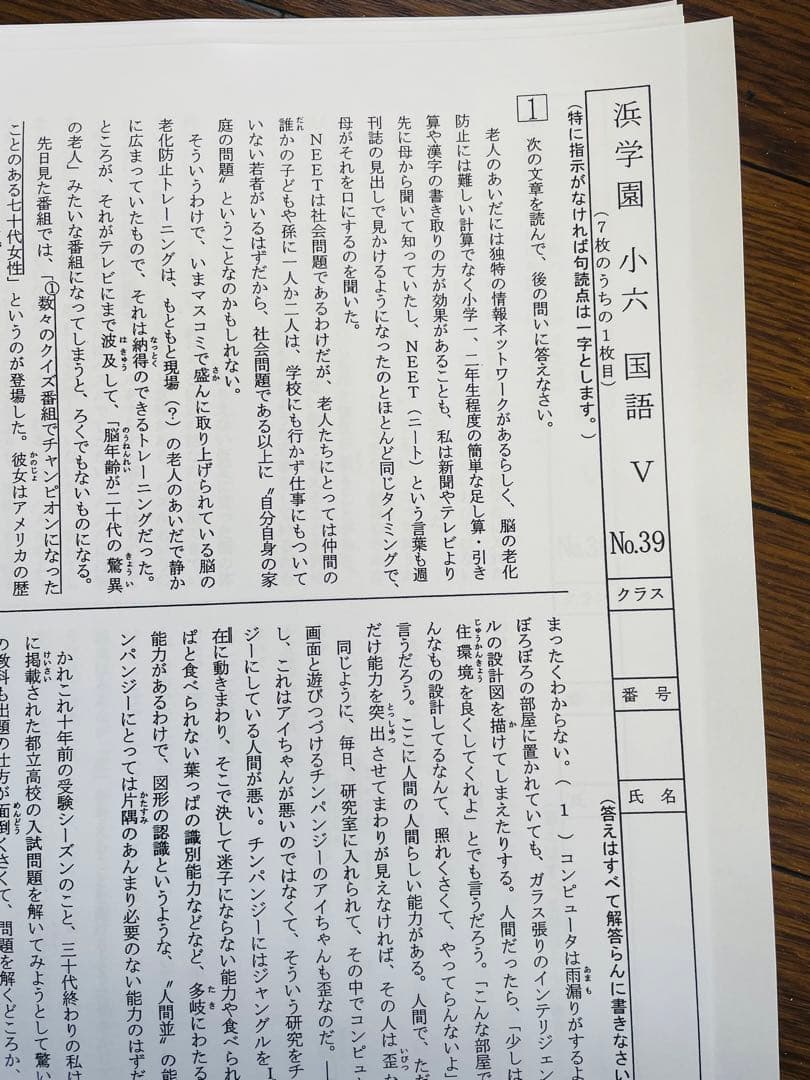 浜学園 小六 国語 Ⅴ No.39
クラス
番号
氏名
(7枚のうちの1枚目)
(特に指示がなければ句読点は一字とします。)
(答えはすべて解答らんに書きなさい
1 次の文章を読んで、後の問いに答えなさい。
老人のあいだには独特の情報ネットワークがあるらしく、脳の老化
防止には難しい計算でなく小学一、二年生程度の簡単な足し算・引き
算や漢字の書き取りの方が効果があることも、私は新聞やテレビより
先に母から聞いて知っていたし、NEET(ニート)という言葉も週
刊誌の見出しで見かけるようになったのとほとんど同じタイミングで、
母がそれを口にするのを聞いた。
NEETは社会問題であるわけだが、老人たちにとっては仲間の
誰かの子どもや孫に一人か二人は、学校にも行かず仕事にもついて
いない若者がいるはずだから、社会問題である以上に〝自分自身の家
庭の問題〟ということなのかもしれない。
そういうわけで、いまマスコミで盛んに取り上げられている脳の
老化防止トレーニングは、もともと現場(?)の老人のあいだで静か
に広まっていたもので、それは納得のできるトレーニングだった。
ところが、それがテレビにまで波及して、「脳年齢が二十代の驚異
の老人」みたいな番組になってしまうと、ろくでもないものになる。
先日見た番組では、「①数々のクイズ番組でチャンピオンになった
ことのある七十代女性」というのが登場した。彼女はアメリカの歴
まったくわからない。( 1 )コンピュータは雨漏りがするよ
ぼろぼろの部屋に置かれていても、ガラス張りのインテリジェン
ルの設計図を描けてしまえたりする。人間だったら、「少しは
住環境を良くしてくれよ」とでも言うだろう。「こんな部屋で
んなもの設計してるなんて、照れくさくて、やってらんないよ」
言うだろう。ここに人間の人間らしい能力がある。人間で、ただ
だけ能力を突出させてまわりが見えなければ、その人は歪な
同じように、毎日、研究室に入れられて、その中でコンピュ
画面と遊びつづけるチンパンジーのアイちゃんも歪なのだ。―
し、これはアイちゃんが悪いのではなくて、そういう研究をチ
ジーにしている人間が悪い。チンパンジーにはジャングルを
在に動きまわり、そこで決して迷子にならない能力や食べられ
ぱと食べられない葉っぱの識別能力などなど、多岐にわたる
能力があるわけで、図形の認識というような、〝人間並〟の能
ンパンジーにとっては片隅のあんまり必要のない能力のはずだ
かれこれ十年前の受験シーズンのこと、三十代終わりの私は
に掲載された都立高校の入試問題を解いてみようとして驚い
の教科も出題の仕方が面倒くさくて、問題を解くどころか、